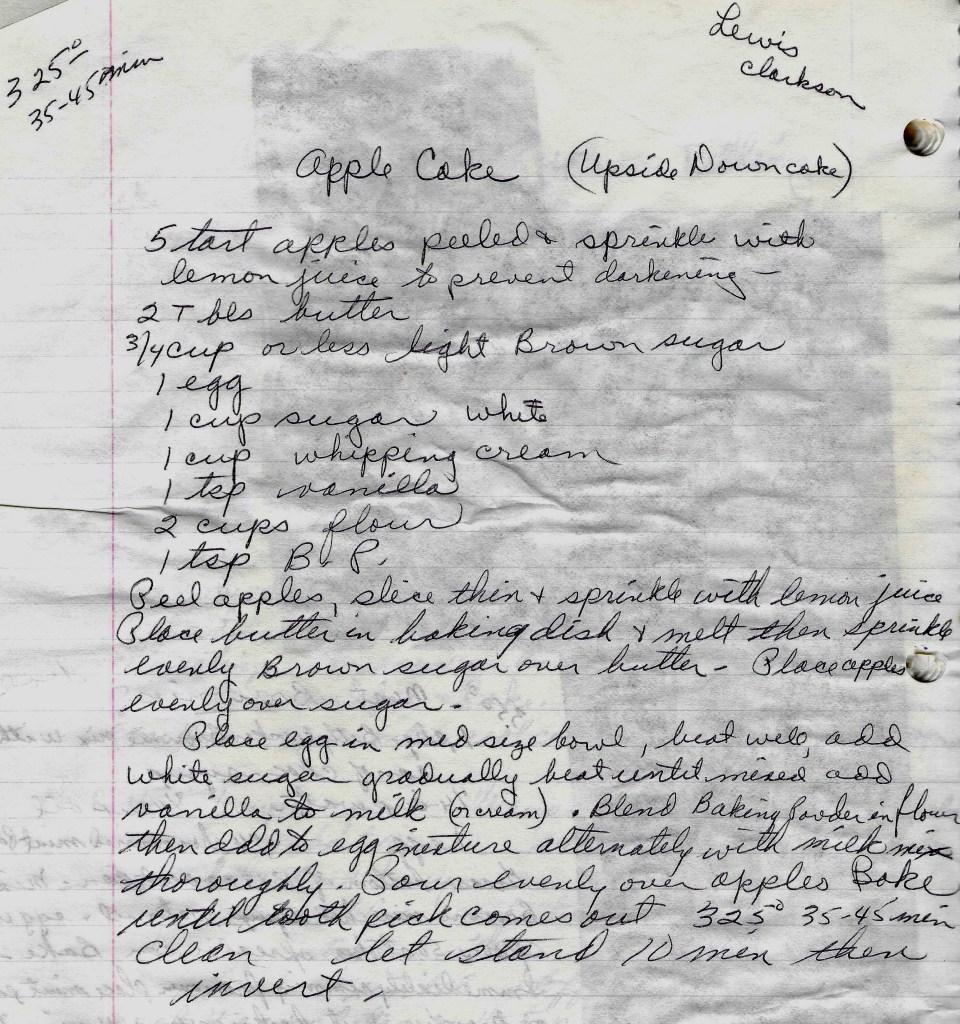 325°
35-45 min
Lewis
Clarkson
Apple Cake (Upside Down cake)
5 tart apples peeled & sprinkle with
lemon juice to prevent darkening -
2 T bls butter
3/4 cup or less light Brown sugar
1 egg
1 cup sugar white
1 cup whipping cream
1 tsp vanilla
2 cups flour
1 tsp B. P.
Peel apples, slice thin & sprinkle with lemon juice
Place butter in baking dish & melt then sprinkle
evenly Brown sugar over butter - Place apples
evenly over sugar.
Place egg in med size bowl, beat well, add
white sugar gradually beat until mixed add
vanilla to milk (or cream). Blend Baking Powder in flour
then add to egg mixture alternately with milk mix
thoroughly. Pour evenly over apples Bake
until tooth pick comes out 325° 35-45 min
clean let stand 10 min then
invert.